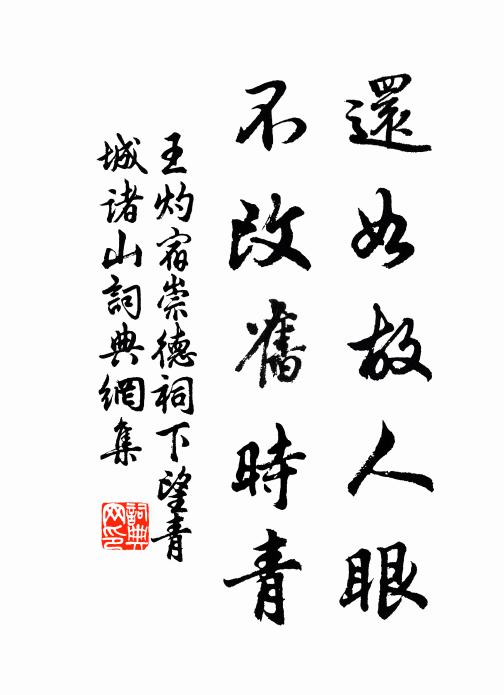 還如故人眼
不改舊時青
王灼宿崇德祠下望青
城诸山詞典網集
詞典
网印